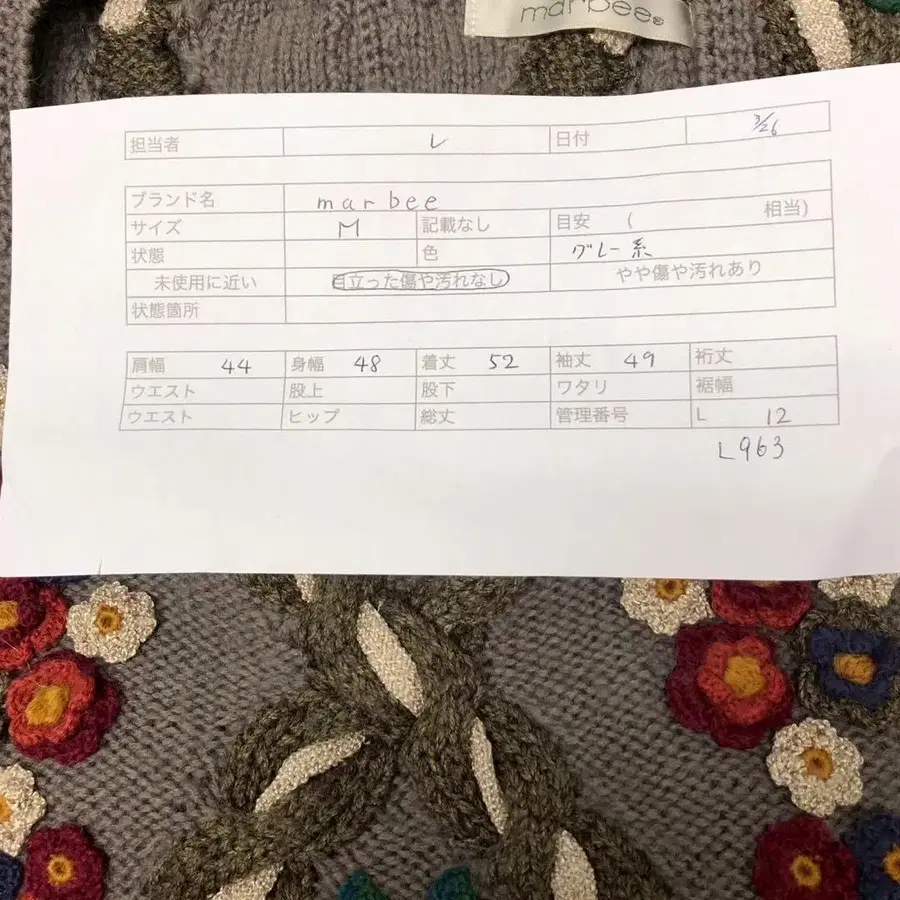 marbee®
担当者 L 日付 3/26
ブランド名 marbee
サイズ M 記載なし 目安 ( 相当)
状態 色 グレー系
未使用に近い 目立った傷や汚れなし やや傷や汚れあり
状態箇所
肩幅 44 身幅 48 着丈 52 袖丈 49 裄丈
ウエスト 股上 股下 ワタリ 裾幅
ウエスト ヒップ 総丈 管理番号 L 12
L963